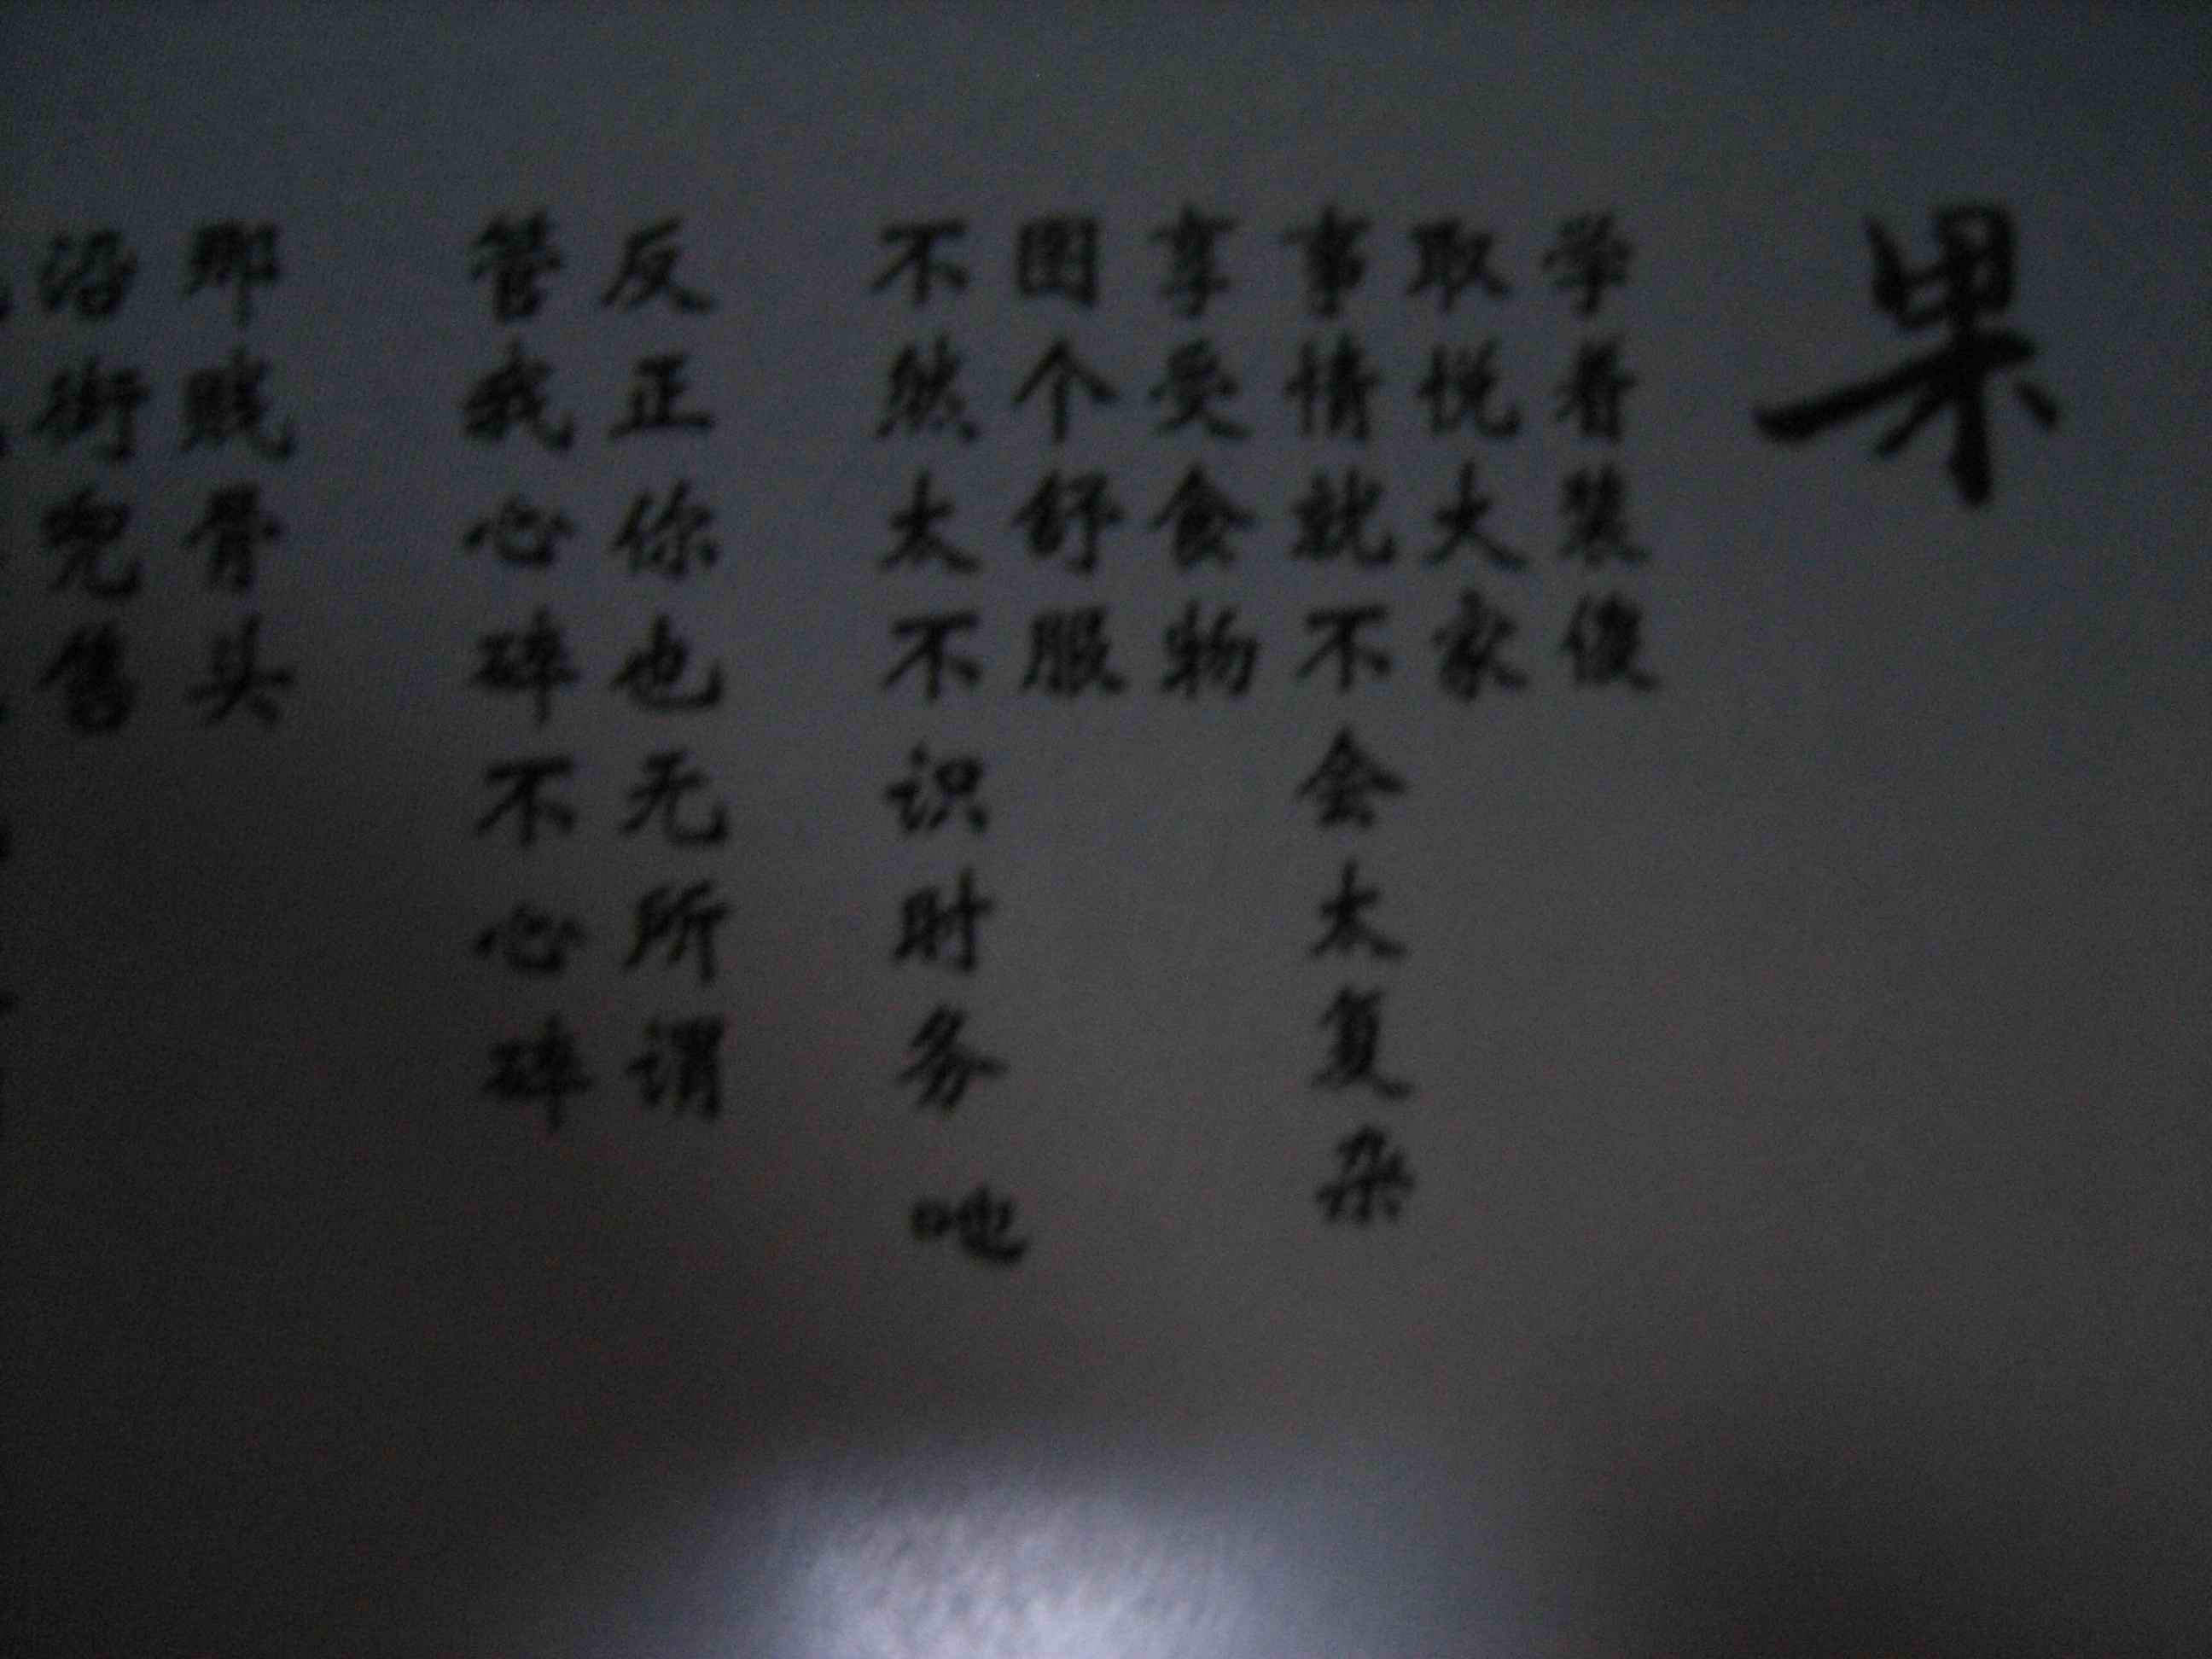 果
学着装傻
取悦大家
事情就不会太复杂
享受食物
图个舒服
不然太不识时务
吔
反正你也无所谓
管我心碎不心碎
那贱骨头
沿街兜售